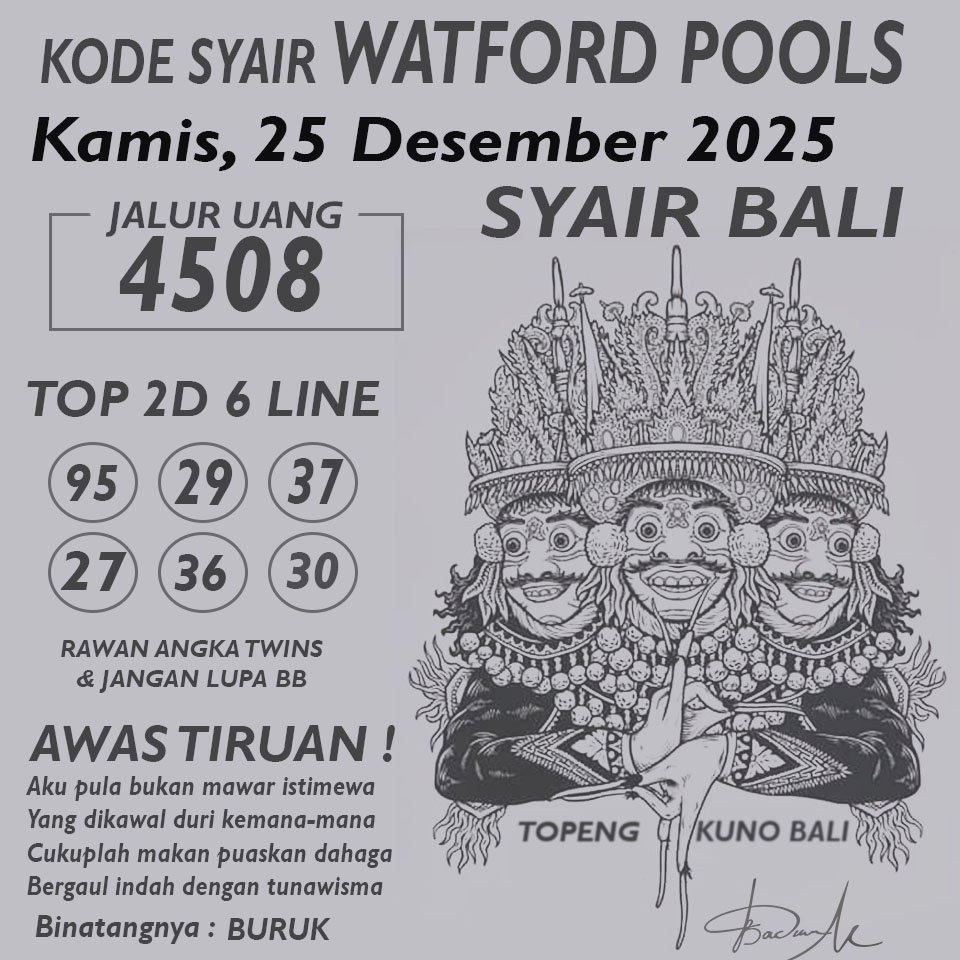 KODE SYAIR WATFORD POOLS
Kamis, 25 Desember 2025
SYAIR BALI
JALUR UANG
4508
TOP 2D 6 LINE
95 29 37
27 36 30
RAWAN ANGKA TWINS
& JANGAN LUPA BB
AWAS TIRUAN !
Aku pula bukan mawar istimewa
Yang dikawal duri kemana-mana
Cukuplah makan puaskan dahaga
Bergaul indah dengan tunawisma
Binatangnya : BURUK
TOPENG KUNO BALI